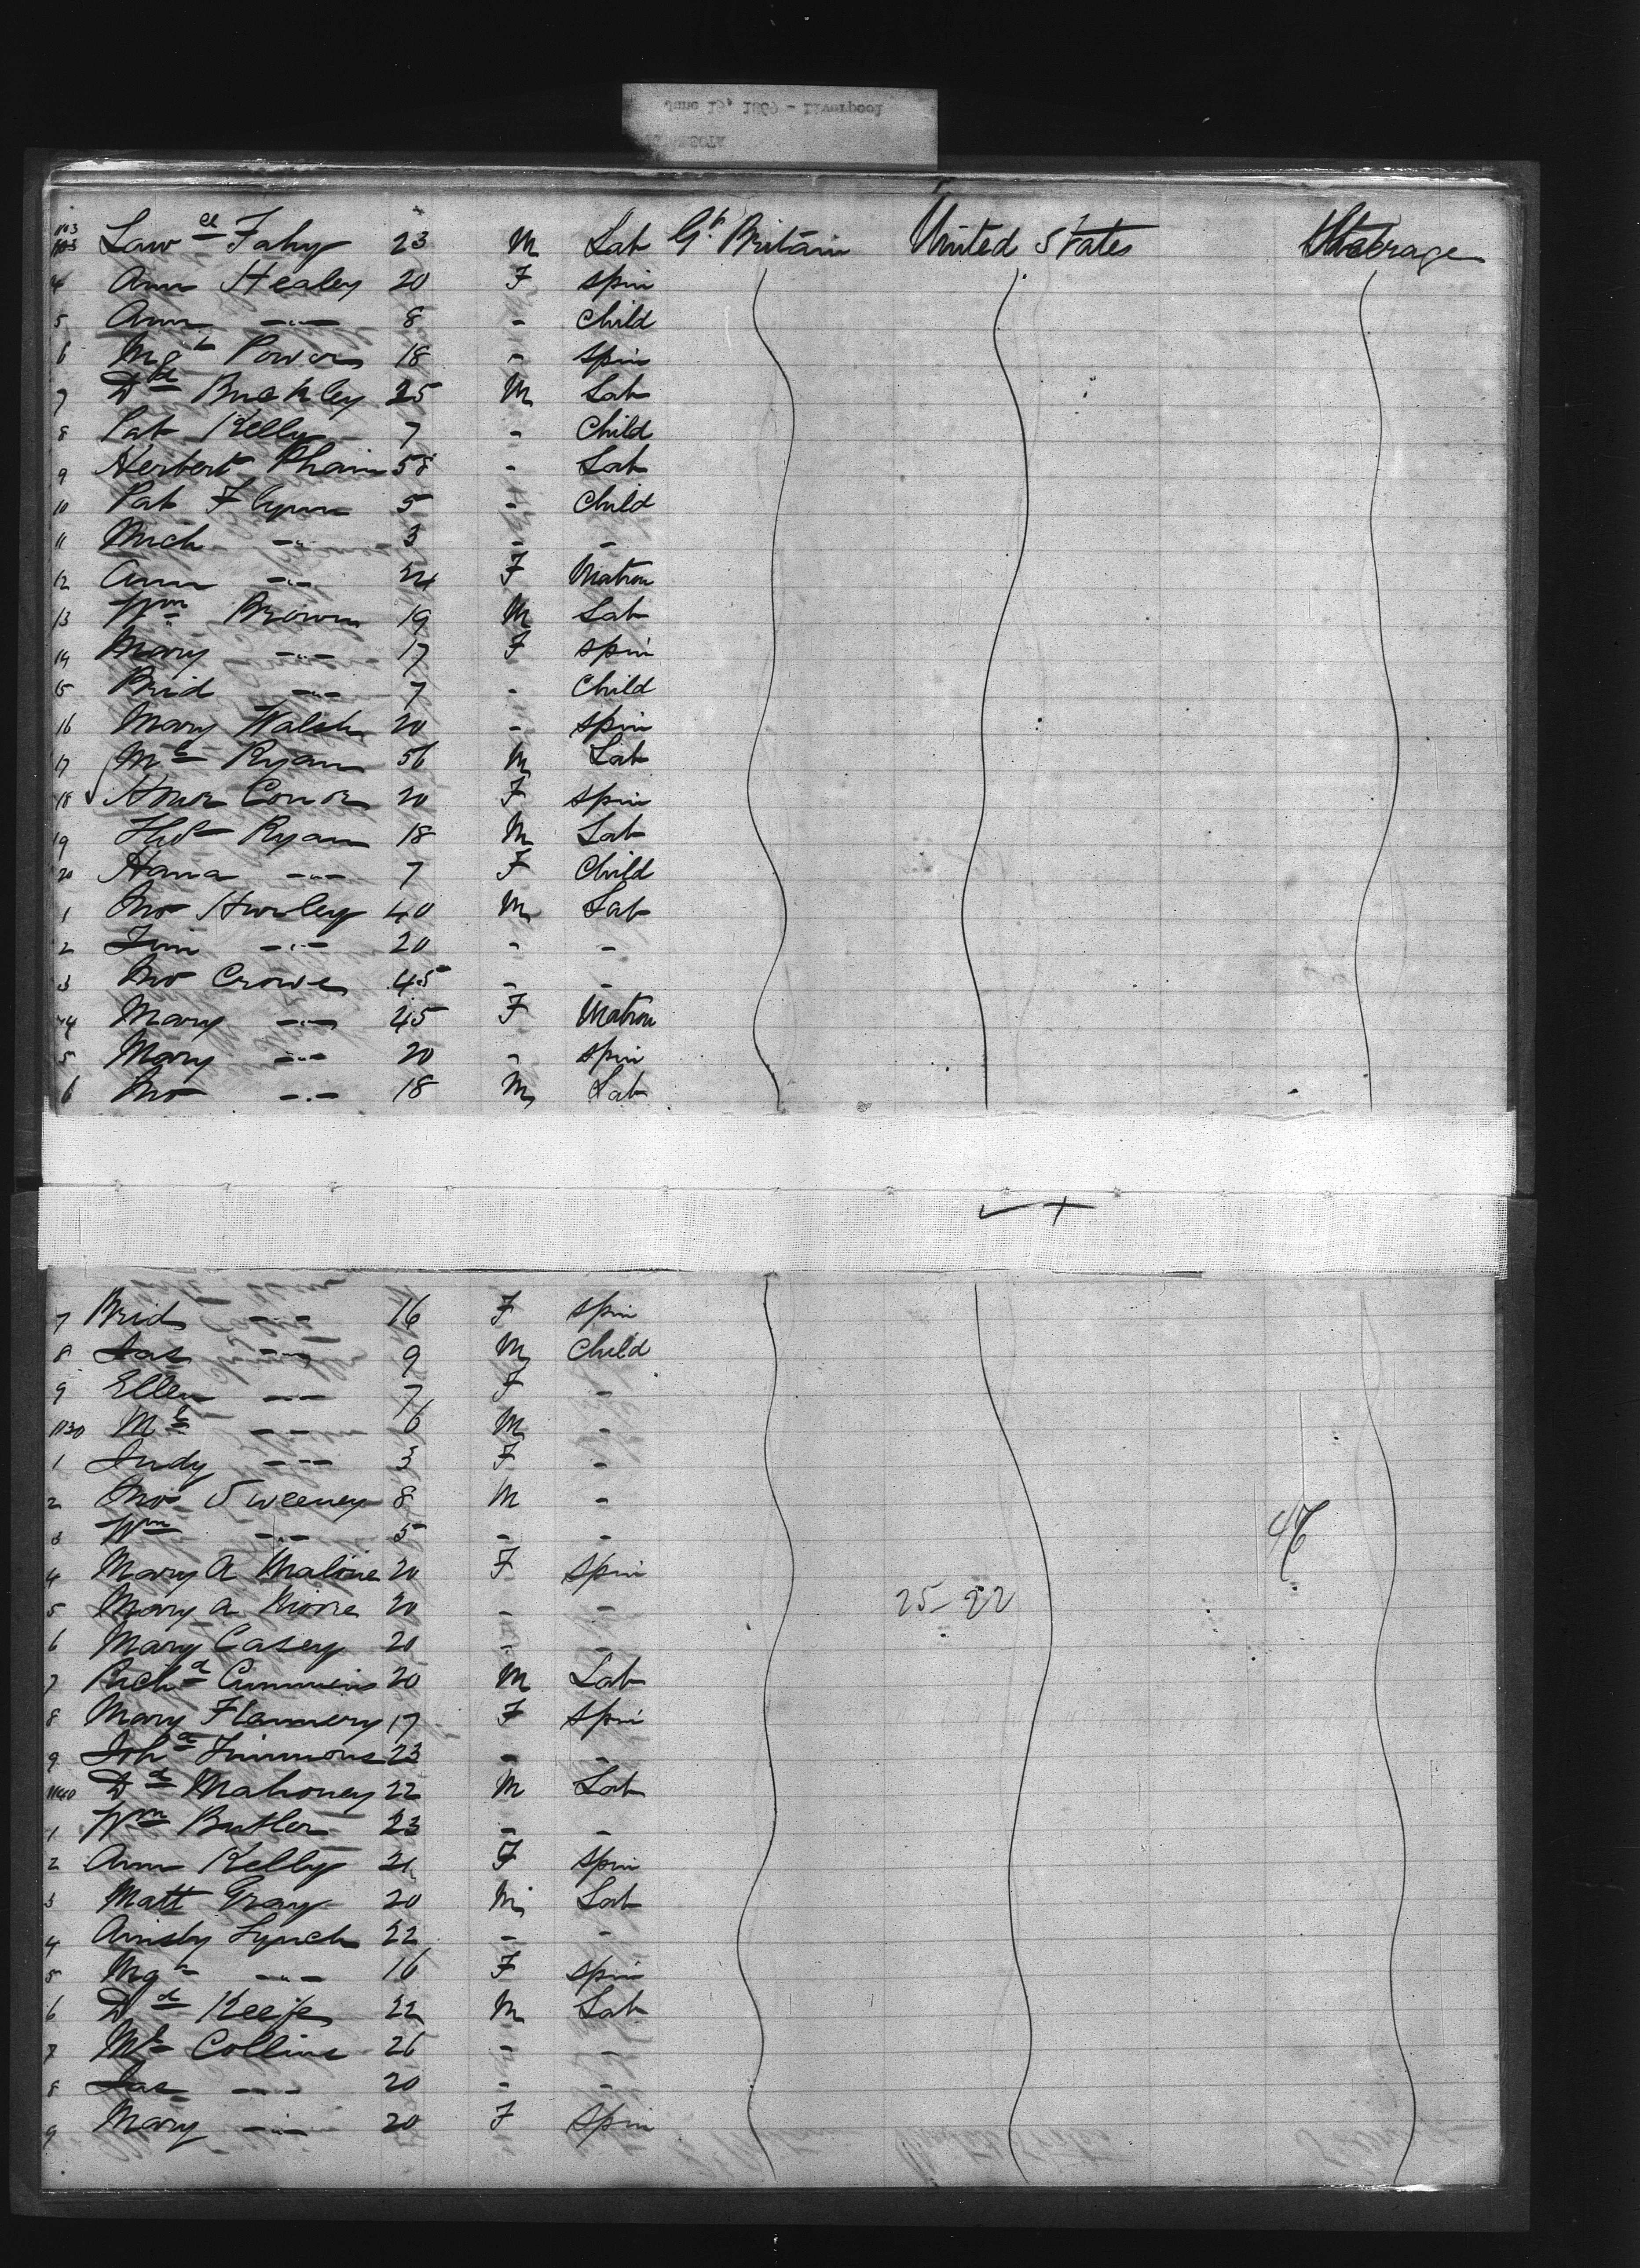 June 15, 1869 - Liverpool
1103 Lawce Fahy 23 M Lab Gt Britain United States Steerage
4 Ann Healey 20 F Spin
5 Ann -"- 8 - Child
6 Mgt Power 18 - Spin
7 Dd Buckley 25 M Lab
8 Pat Kelly 7 - Child
9 Herbert 58 - Lab
10 Pat Flynn 5 - Child
11 Mich -"- 3 - -
12 Ann -"- 24 F Matron
13 Wm Brown 19 M Lab
14 Mary -"- 17 F Spin
15 Brid -"- 7 - Child
16 Mary Walsh 20 - Spin
17 Ml Ryan 56 M Lab
18 Conor 20 F Spin
19 Ryan 18 M Lab
20 Hana -"- 7 F Child
1 Jno Hurley 40 M Lab
2 Tim -"- 20 - -
3 Jno Crowe 45 - -
4 Mary -"- 45 F Matron
5 Mary -"- 20 - Spin
6 Jno -"- 18 M Lab
7 Brid -"- 16 F Spin
8 Jas -"- 9 M Child
9 Ellen -"- 7 F -
1130 Ml -"- 6 M -
1 Judy -"- 3 F -
2 Jno Sweeney 8 M -
3 Wm -"- 5 - -
4 Mary A Malone 20 F Spin
5 Mary A 20 - - 25-22
6 Mary Casey 20 - -
7 Richd Cummins 20 M Lab
8 Mary Flannery 17 F Spin
9 Joha Timmons 23 - -
1140 Dd Mahoney 22 M Lab
1 Wm Butler 23 - -
2 Ann Kelly 21 F Spin
3 Matt Gray 20 M Lab
4 Lynch 22 - -
5 Mgt -"- 16 F Spin
6 Dd Keefe 22 M Lab
7 Ml Collins 26 - -
8 Jas -"- 20 - -
9 Mary -"- 20 F Spin